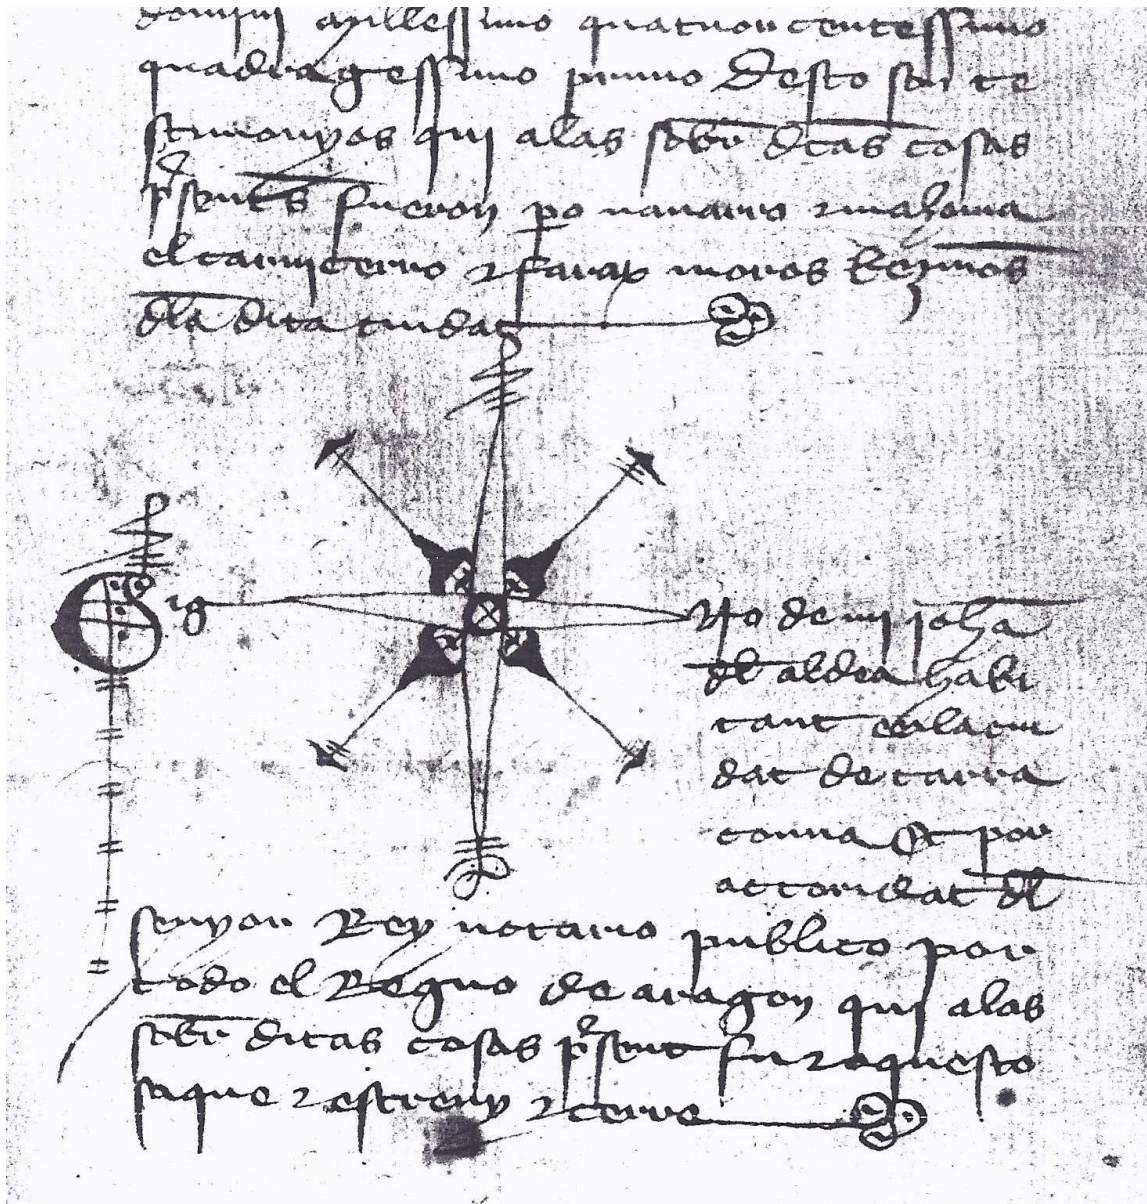 domini Millessimo quatuorcentessimo
quadragessimo primo Desto son te
stimonyos qui a las sobre dtas cosas
psentes fueron po nauarro z mahoma
el carnicerro z farax moros bezinos
dla dita ciudat
Sig no de mi joha
dl aldea habi
tant en la ciu
dat de tarra
çonna Et por
actoridat dl
senyor Rey notario publico por
todo el Regno de aragon qui a las
sobre ditas cosas psent fu z aquesto
saque z escreuy z cerre